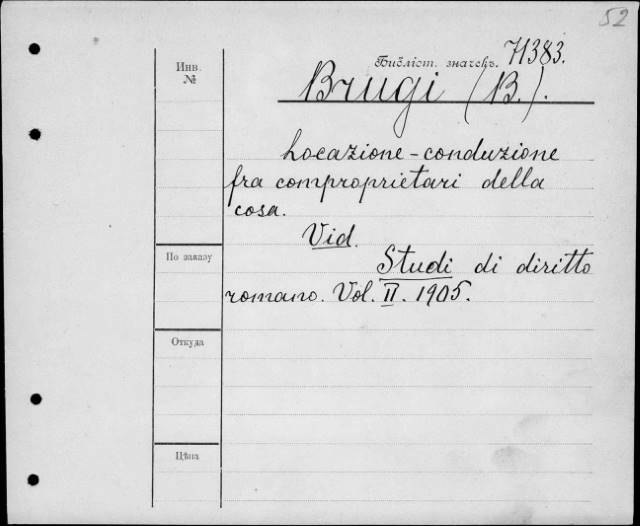 52
Библіот. значекъ. 71383.
Инв.
№
Brugi (B.).
Locazione-conduzione
fra comproprietari della
cosa.
Vid.
По заказу
Studi di diritto
romano. Vol. II. 1905.
Откуда
Цѣна